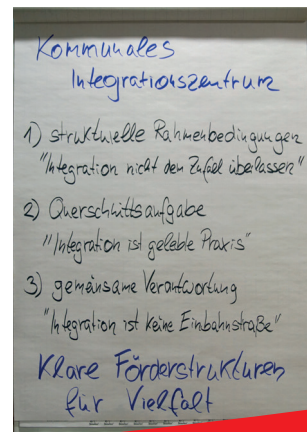 Kommunales
Integrationszentrum
1) strukturelle Rahmenbedingungen
"Integration nicht dem Zufall überlassen"
2) Querschnittsaufgabe
"Integration ist gelebte Praxis"
3) gemeinsame Verantwortung
"Integration ist keine Einbahnstraße"
Klare Förderstrukturen
für Vielfalt